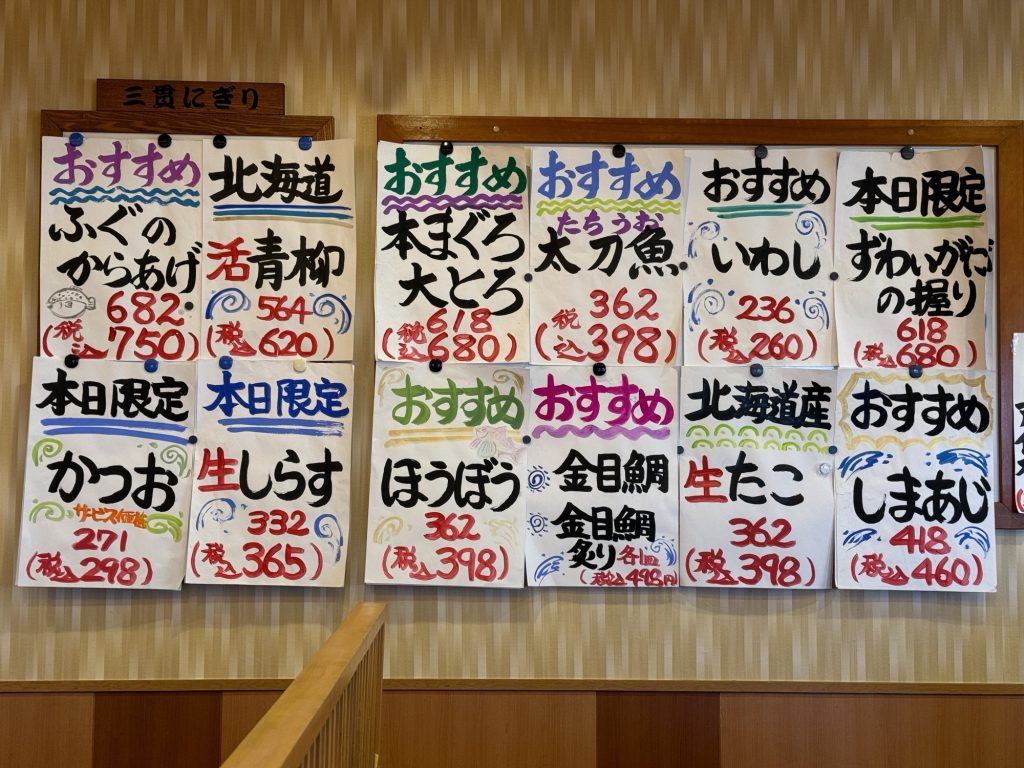 三貫にぎり
おすすめ
ふぐの
からあげ
682
(税込750)
北海道
活青柳
564
(税込620)
おすすめ
本まぐろ
大とろ
618
(税込680)
おすすめ
たちうお
太刀魚
362
(税込398)
おすすめ
いわし
236
(税込260)
本日限定
ずわいがに
の握り
618
(税込680)
本日限定
かつお
サービス価格
271
(税込298)
本日限定
生しらす
332
(税込365)
おすすめ
ほうぼう
362
(税込398)
おすすめ
金目鯛
金目鯛
炙り各皿
(税込498円)
北海道産
生たこ
362
(税込398)
おすすめ
しまあじ
418
(税込460)